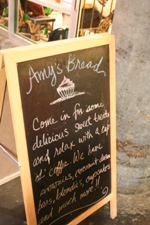 Amy's Bread
Come in for some
delicious sweet treats
and relax with a cup
of coffee. We have
brownies, coconut dream
bars, blondies, cupcakes
and much more!!